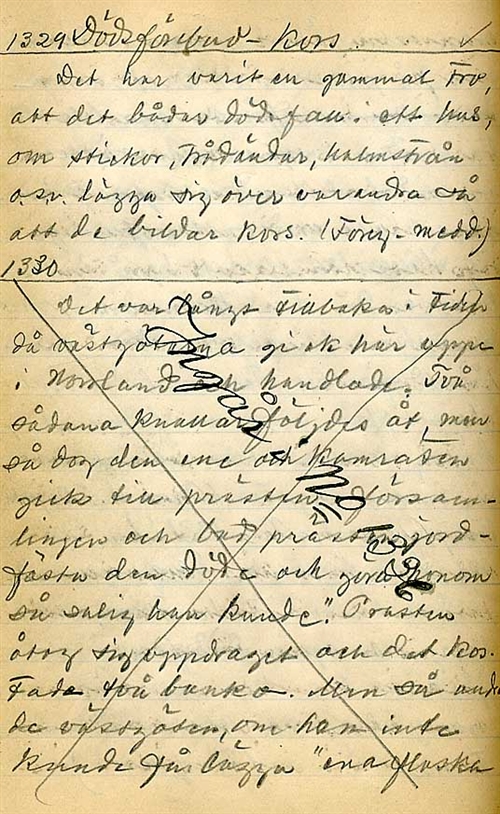 1329 Dödsförebud - Kors.
Det har varit en gammal Tro,
att det bådar dödsfall i ett hus,
om stickor, Trådändar, halmstrån
o.sv. lägga sig över varandra så
att de bildar kors. (Föreg. medd.)
1330
Det var långt tillbaka i Tiden
då västgötarna gick här uppe
i Norrland och handlade. Två
sådana knallar följdes åt, men
så dog den ene och kamraten
gick till prästen i försam-
lingen och bad prästen jord-
fästa den döde och göra honom
så salig han kunde". Prästen
åtog sig uppdraget och det kos-
Tade två banko. Men så undra
de västgöten, om han inte
kunde få lägga "ena flaska
Ingår i No 1332